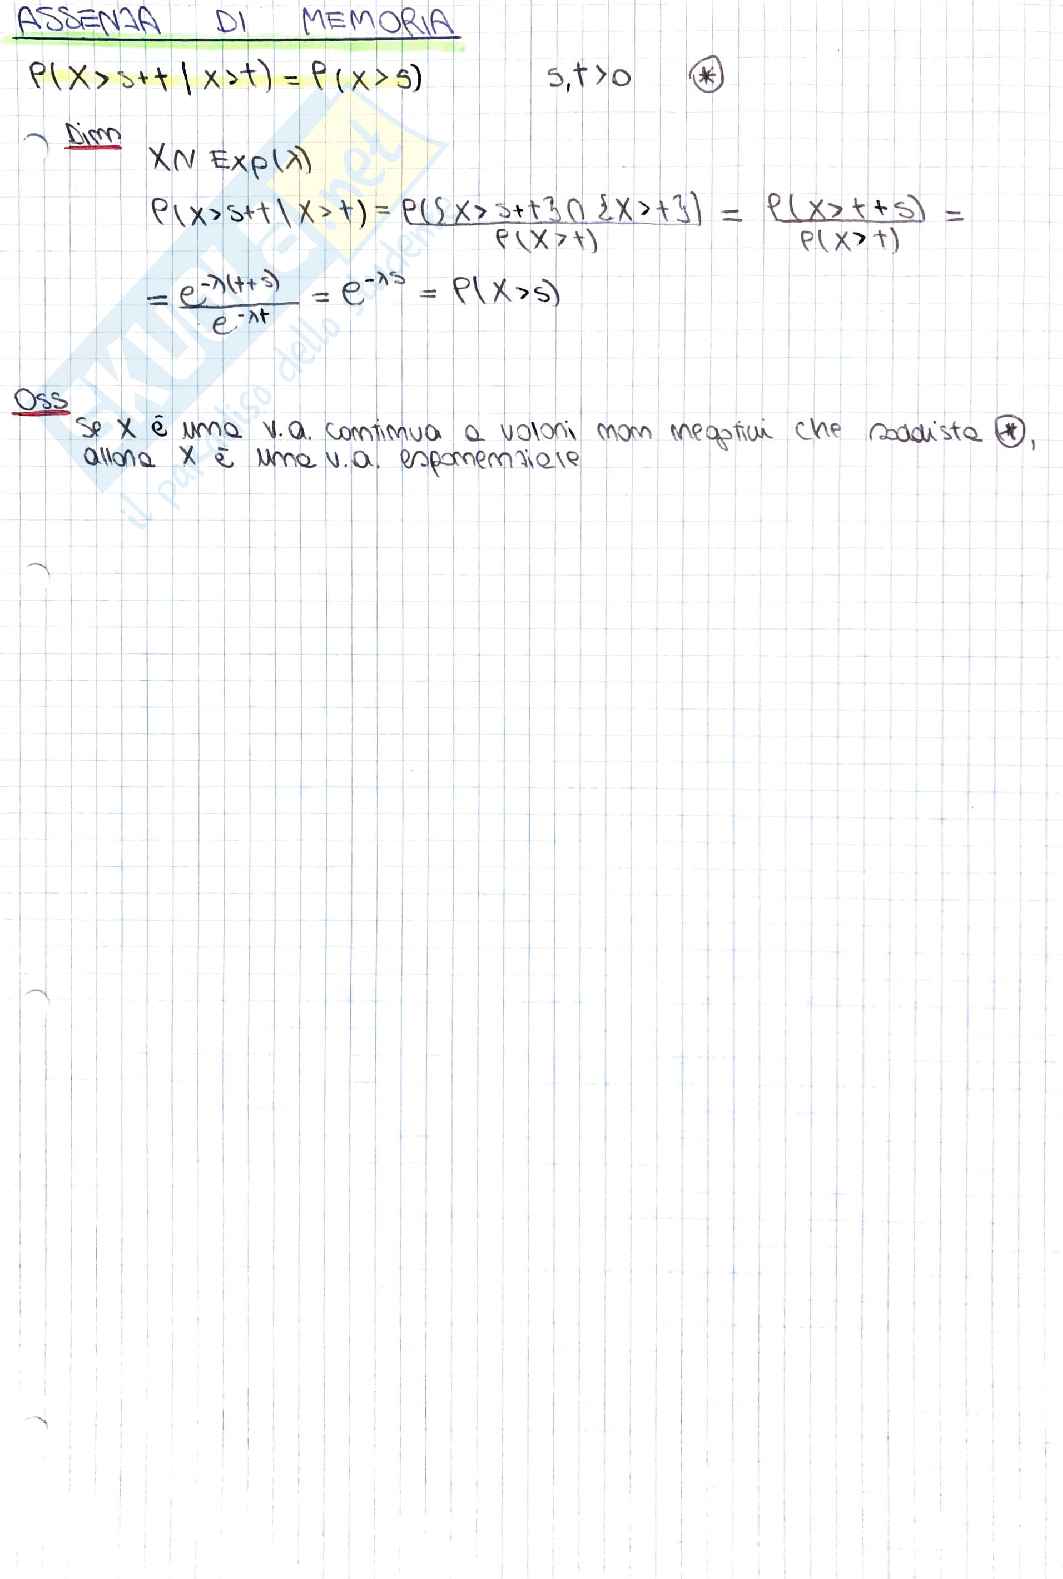 ASSENZA DI MEMORIA
P(X>s+t | X>t) = P(X>s) s,t>0 (*)
Dim
X ~ Exp(λ)
P(X>s+t | X>t) = P({X>s+t} ∩ {X>t}) / P(X>t) = P(X>t+s) / P(X>t) =
= e^-λ(t+s) / e^-λt = e^-λs = P(X>s)
Oss
Se X è una v.a. continua a valori non negativi che soddisfa (*),
allora X è una v.a. esponenziale
SKUOLA.net
il paradiso dello studente